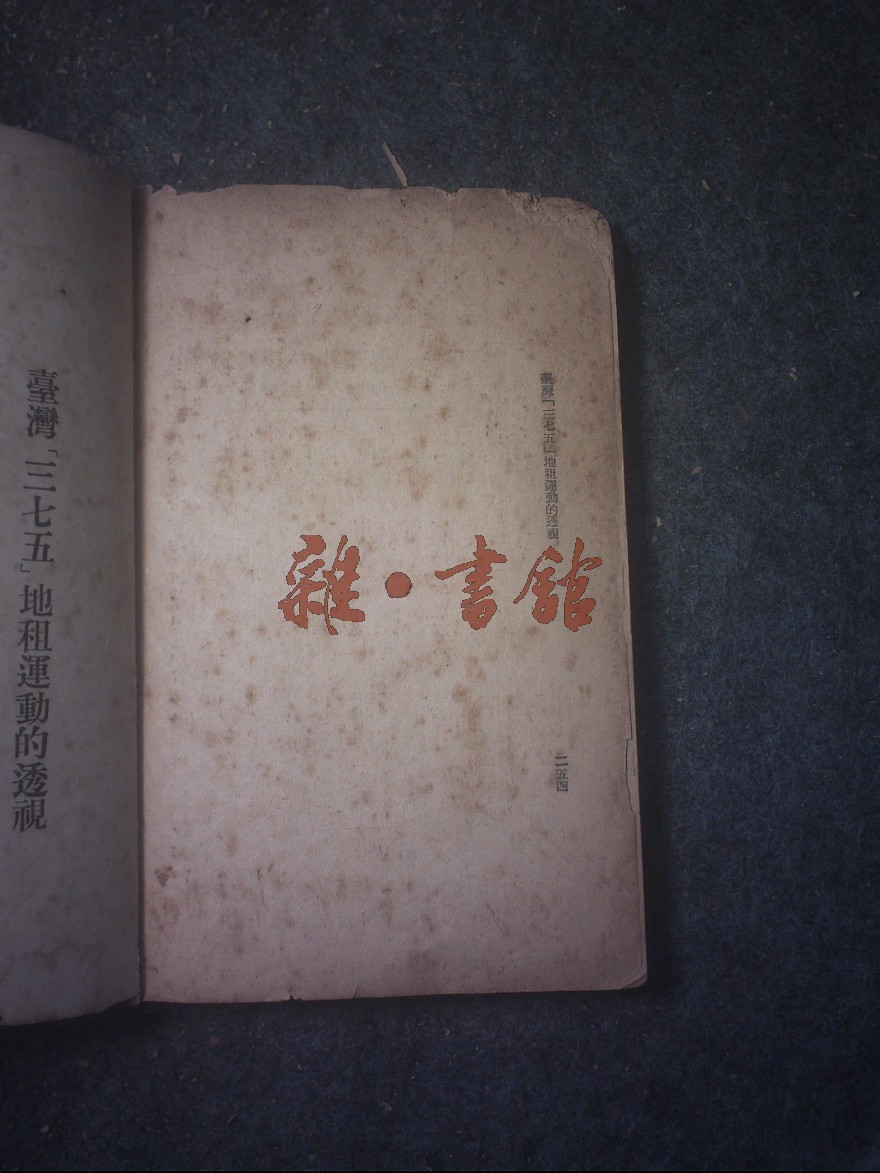 臺灣「三七五」地租運動的透視
二五四
雜·書館
臺灣「三七五」地租運動的透視